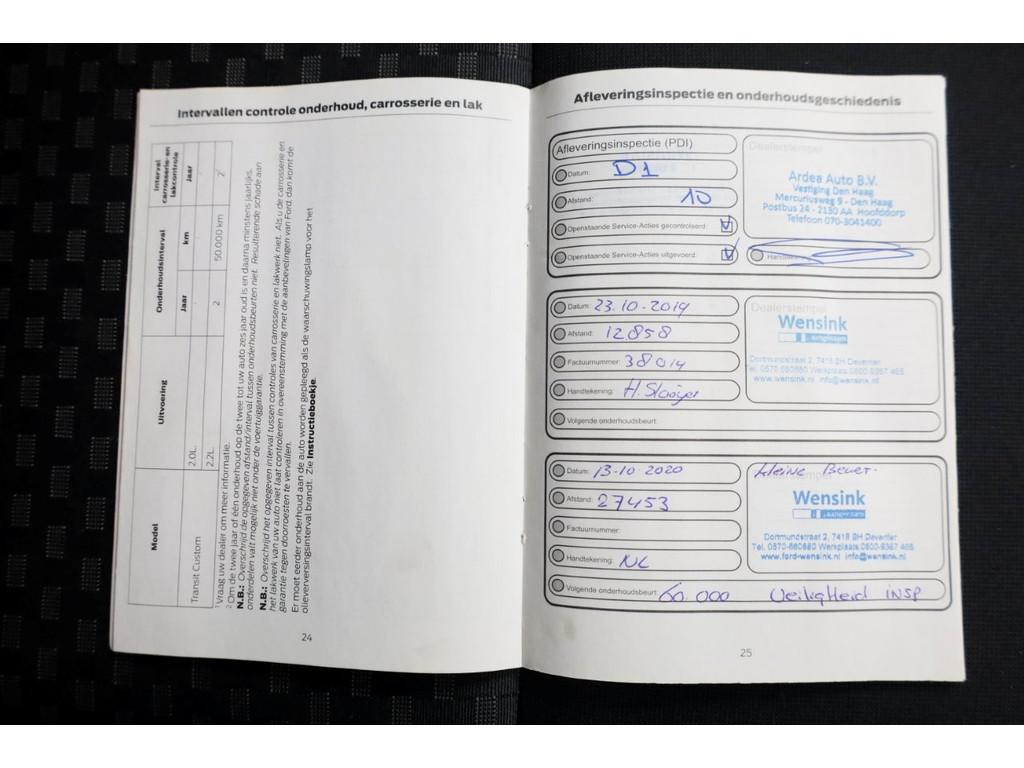 Intervallen controle onderhoud, carrosserie en lak
Model
Uitvoering
Onderhoudsinterval
Interval carrosserie-en lakcontrole
Jaar
km
Jaar
Transit Custom
2.0L
2.2L
2
50.000 km
2
¹ Vraag uw dealer om meer informatie.
² Om de twee jaar of één onderhoud op de twee tot uw auto zes jaar oud is en daarna minstens jaarlijks.
N.B.: Overschrijd de opgegeven afstand/interval tussen onderhoudsbeurten niet. Resulterende schade aan
onderdelen valt mogelijk niet onder de voertuiggarantie.
N.B.: Overschrijd het opgegeven interval tussen controles van carrosserie en lakwerk niet. Als u de carrosserie en
het lakwerk van uw auto niet laat controleren in overeenstemming met de aanbevelingen van Ford, dan komt de
garantie tegen doorroesten te vervallen.
Er moet eerder onderhoud aan de auto worden gepleegd als de waarschuwingslamp voor het
olieverversingsinterval brandt. Zie Instructieboekje.
24
Afleveringsinspectie en onderhoudsgeschiedenis
Afleveringsinspectie (PDI)
Datum: D1
Afstand: 10
Openstaande Service-Acties gecontroleerd:
Openstaande Service-Acties uitgevoerd:
Dealerstempel
Ardea Auto B.V.
Vestiging Den Haag
Mercuriusweg 9 - Den Haag
Postbus 24 - 2130 AA Hoofddorp
Telefoon 070-3041400
Datum: 23-10-2019
Afstand: 12858
Factuurnummer: 38014
Handtekening:
Volgende onderhoudsbeurt:
Dealerstempel
Wensink
Dortmundstraat 2, 7418 BH Deventer
Tel. 0570-660660 Werkplaats 0800-9367 465
www.wensink.nl info@wensink.nl
Datum: 13-10-2020
Afstand: 27453
Factuurnummer:
Handtekening: NL
Volgende onderhoudsbeurt: 60.000 Veiligheid INSP
Kleine Beurt.
Wensink
Dortmundstraat 2, 7418 BH Deventer
Tel. 0570-660660 Werkplaats 0800-9367 465
www.ford-wensink.nl info@wensink.nl
25